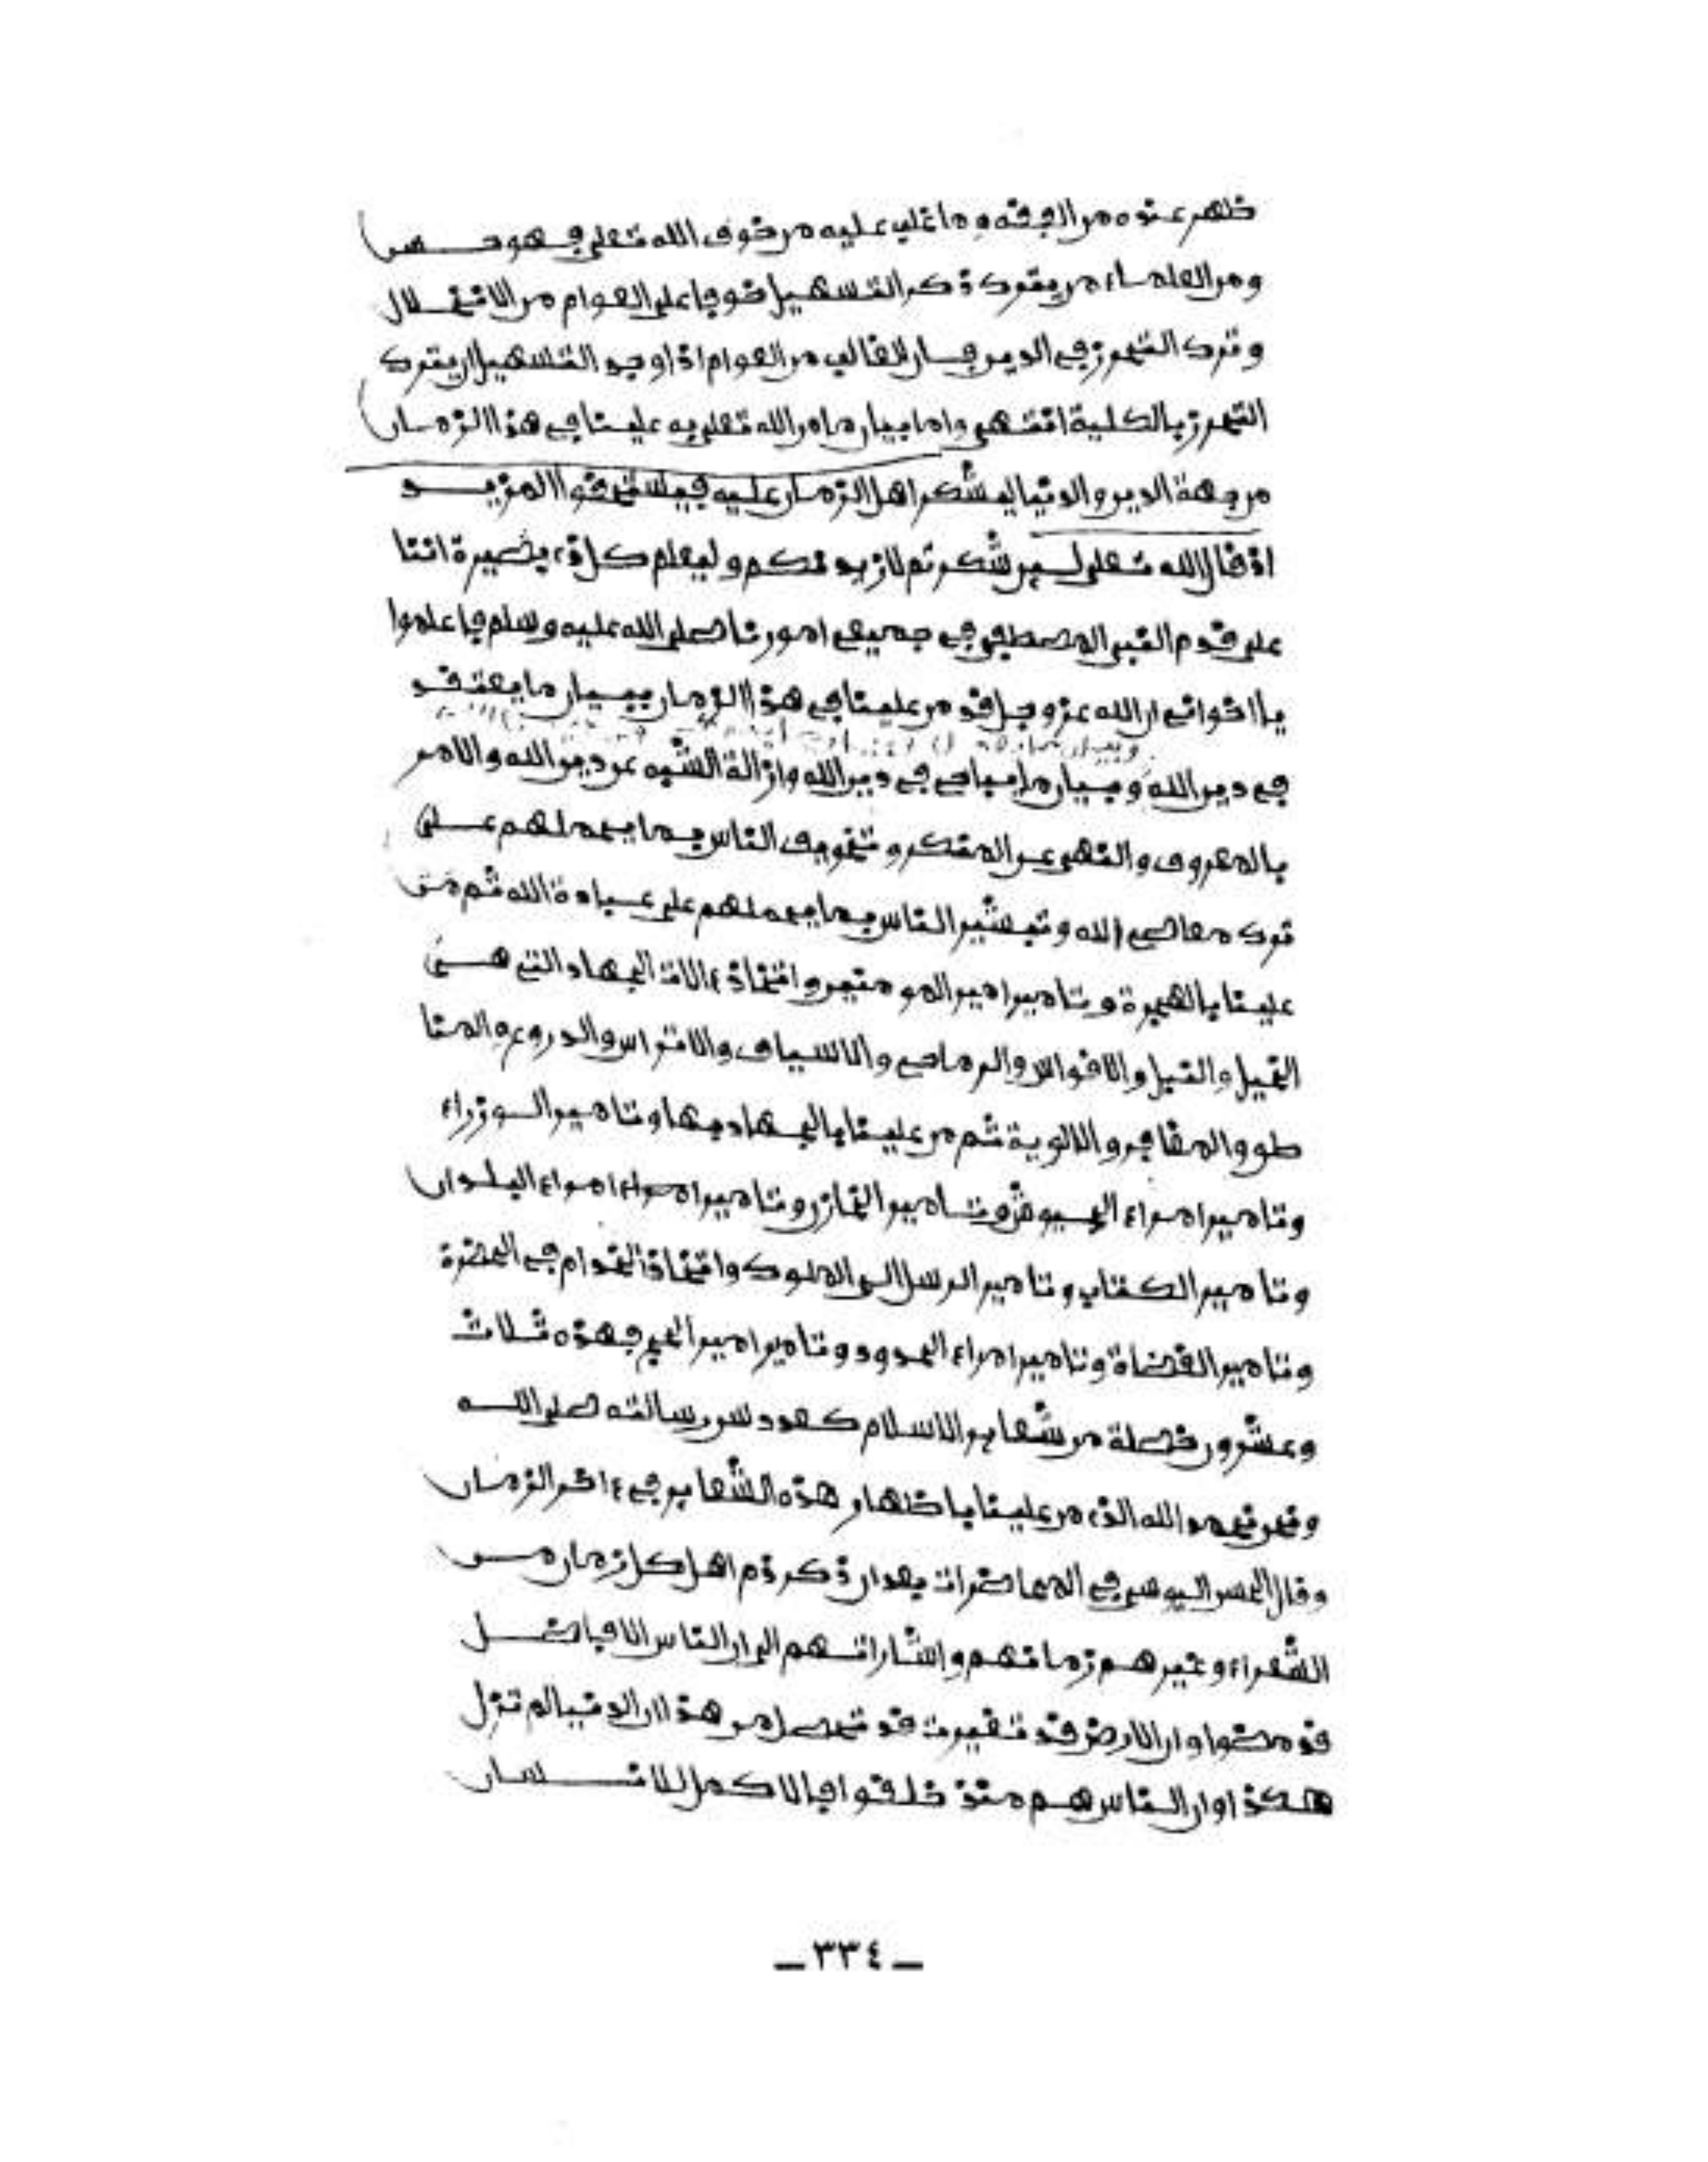 ظهر عنده من الفقه وما غلب عليه من خوف الله تعلى فهو حسن
ومن العلماء من يترك ذكر التسهيل خوفا على العوام من الانحلال
وترك التحرز في الدين فان الغالب من العوام اذا وجد التسهيل ان يترك
التحرز بالكلية انتهى واما بيان ما من الله تعلى به علينا في هذا الزمان
من جهة الدين والدنيا ليشكر اهل الزمان عليه فيستحقوا المزيد
اذ قال الله تعلى لين شكرتم لازيدنكم وليعلم كل ذي بصيرة اننا
على قدم النبي المصطفى في جميع امورنا صلى الله عليه وسلم فاعلموا
يا اخواني ان الله عز وجل قد من علينا في هذا الزمان ببيان ما يعتقد
في دين الله وبيان ما يباح في دين الله وازالة الشبه عن دين الله والامر
بالمعروف والنهي عن المنكر وتخويف الناس بما يحملهم على
ترك معاصي الله وتبشير الناس بما يحملهم على عبادة الله ثم من
علينا بالهجرة وتامير امير المومنين واتخاذ ءالات الجهاد التي هي
الخيل والنبل والاقواس والرماح والاسياف والاتراس والدروع والمنا
طو والمغافر والالوية ثم من علينا بالجهاد بها وتامير الوزراء
وتامير امراء الجيوش وتامير الخازن وتامير امراء امراء البلدان
وتامير الكتاب وتامير الرسل الى الملوك واتخاذ الخدام في الحضرة
وتامير القضاة وتامير امراء الحدود وتامير امير الحج فهذه ثلاث
وعشرون خصلة من شعاير الاسلام كعدد سن رسالته صلى الله
ونحن نحمد الله الذي من علينا باظهار هذه الشعاير في ءاخر الزمان
وقال الحسن اليوسي في المحاضرات بعد ان ذكر ذم اهل كل زمان من
الشعراء وغيرهم زمانهم واشاراتهم الى ان الناس الافاضل
قد مضوا وان الارض قد تغيرت قد تحصل من هذا ان الدنيا لم تزل
هكذا وان الناس هم منذ خلقوا فالاكمل للانسان
ـ ٣٣٤ ـ